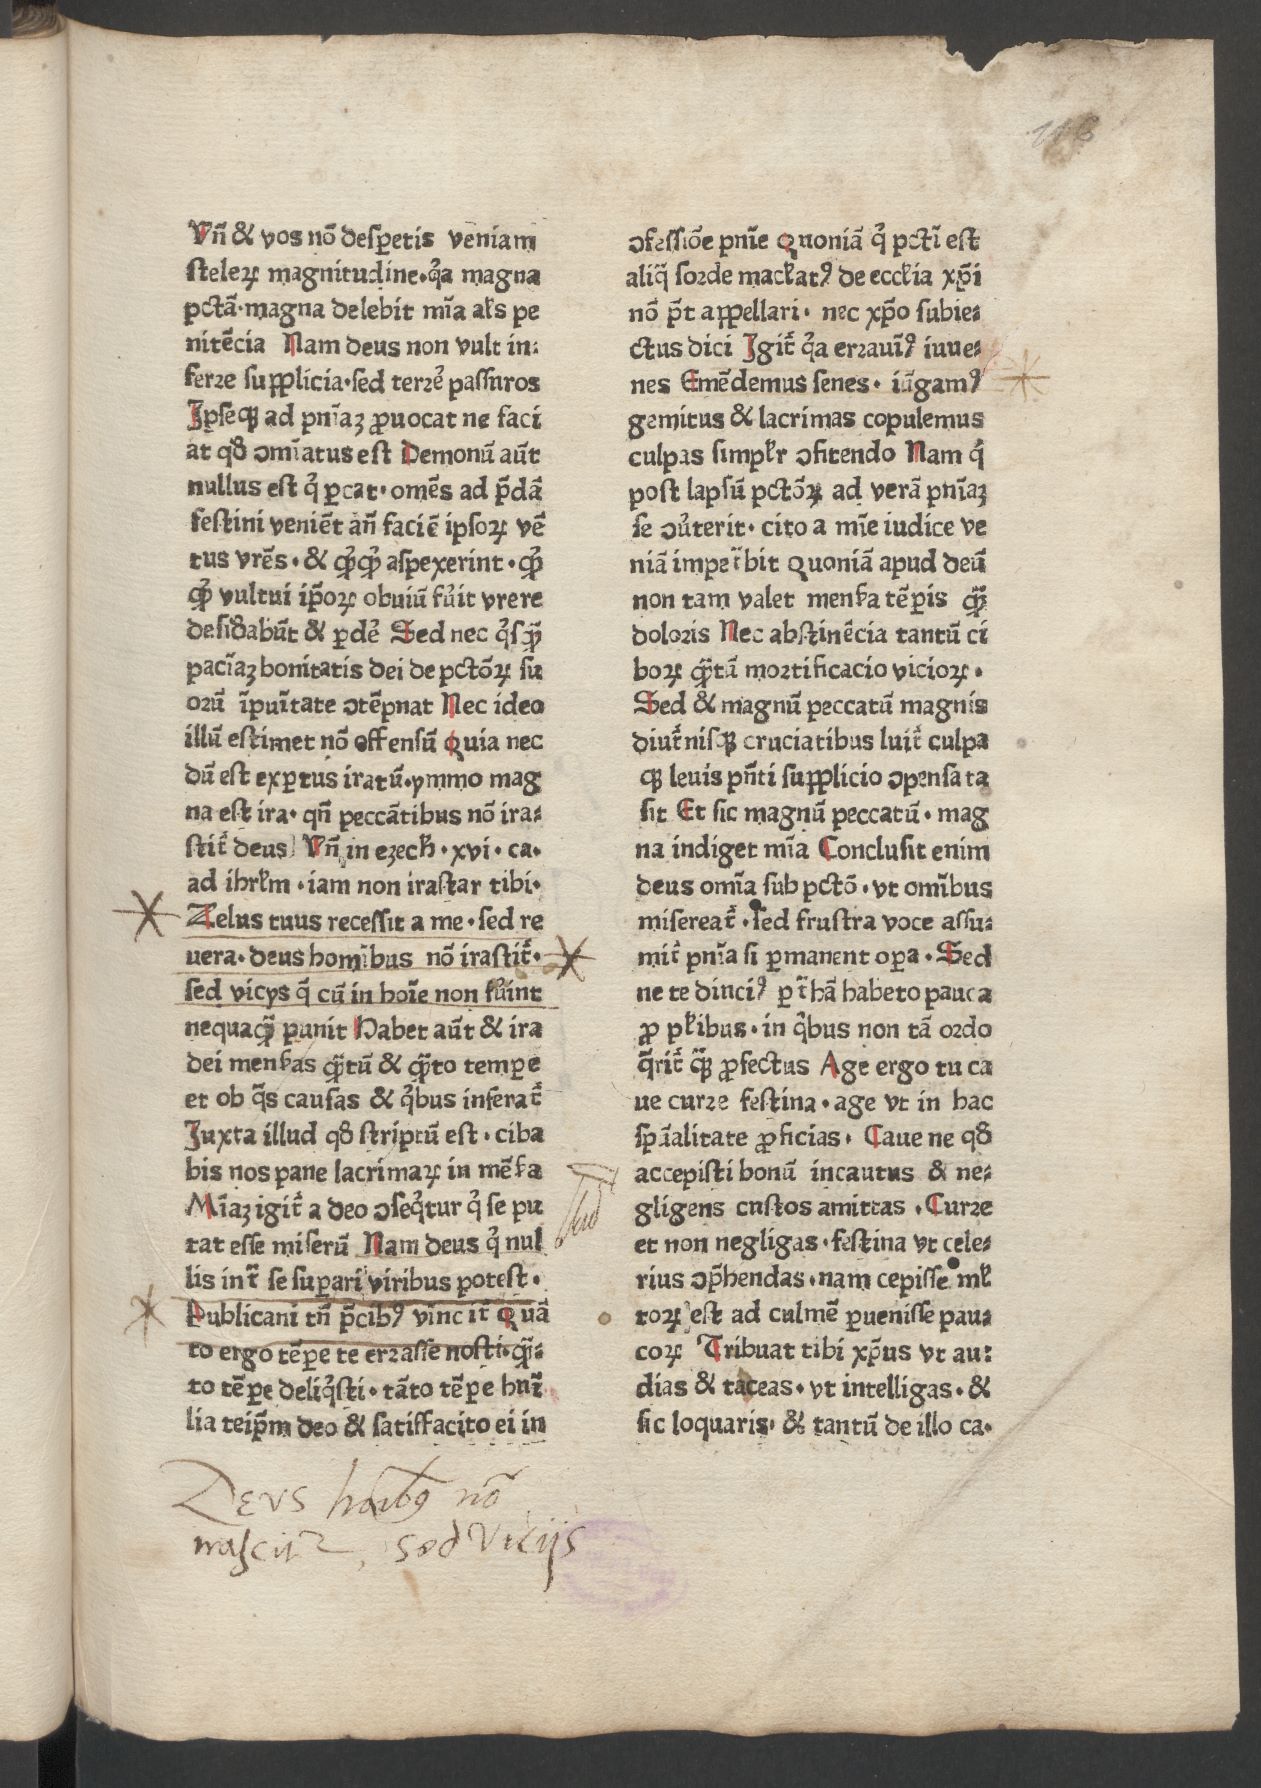 116
Vn̄ & vos nō desꝑetis veniam
steleꝝ magnitudine·q̓a magna
pctā·magna delebit mīa al's pe
nitēcia Nam deus non vult in:
ferre supplicia·sed terrē passuros
Ipseqꝫ ad pnīaꝫ ꝓuocat ne faci
at qđ ɔmīatus est Demonū aūt
nullus est q̓ ꝑcat·omēs ad p̄dā
festini veniēt an̄ faciē ipsoꝝ vē
tus vrēs·& qꝫ̄qꝫ̄ aspexerint·qꝫ̄
qꝫ̄ vultui ip̄oꝝ obuiū fu̓it vrere
desiđabūt & ꝑdē Sed nec q̓sqꝫ̄
pacīaꝫ bonitatis dei de pctōꝝ su
orū īpuītate ɔtēpnat Nec ideo
illū estimet nō offensū Quia nec
dū est exꝑtus iratū·ymmo mag
na est ira·qn̄ peccātibus nō ira:
stit̄ deus Vn̄ in ezech·xvi·ca·
ad ihrl'm·iam non irastar tibi·
Zelus tuus recessit a me·sed re
uera·deus homībus nō irastit̄·
sed vicys q̄ cū in hoīe non fu̓int
nequaqꝫ̄ punit Habet aūt & ira
dei mensas qꝫ̄tū & qꝫ̄to temꝑe
et ob q̄s causas & q̓bus inferat̄
Juxta illud qđ striptū est·ciba
bis nos pane lacrimaꝝ in mēsa
Mīaꝫ igit̄ a deo ɔseq̓tur q̓ se pu
tat esse miserū Nam deus q̓ nul
lis int̄ se suꝑari viribus potest·
Publicani tn̄ p̄cibꝰ vincit̄ Quā
to ergo tēꝑe te errasse nosti·qꝫ̄:
to tēꝑe deliq̓sti·tāto tēꝑe hūi
lia teip̄m deo & satiffacito ei in
ɔfessiōe pnīe Quoniā q̓ pctī est
aliq̄ sorde mack'atꝰ de ecck'ia xp̄i
nō p̄t appellari· nec xp̄o subie:
ctus dici Igit̄ q̓a errauīꝰ iuue:
nes Emēdemus senes· iūgamꝰ
gemitus & lacrimas copulemus
culpas simpl'r ɔfitendo Nam q̓
post lapsū pctōꝝ ad verā pnīaꝫ
se ɔu̓terit·cito a mīe iudice ve
niā impet̄bit Quoniā apud deū
non tam valet mensa tēꝑis qꝫ̄
doloris Nec abstinēcia tantū ci
boꝝ qꝫ̄tū mortificacio vicioꝝ·
Sed & magnū peccatū magnis
diut̄nisqꝫ cruciatibus luit̄ culpa
qꝫ leuis pn̄ti supplicio ɔpensata
sit Et sic magnū peccatū·mag
na indiget mīa Conclusit enim
deus omīa sub pctō·vt omībus
misereat̄·sed frustra voce assu:
mit̄ pnīa si ꝑmanent oꝑa·Sed
ne te dinciꝰ ꝑt̄hā habeto pauca
ꝓ pl'ibus·in q̓bus non tā ordo
q̄rit̄ qꝫ̄ ꝓfectus Age ergo tu ca
ue curre festina·age vt in hac
sp̄ialitate ꝓficias· Caue ne qđ
accepisti bonū incautus & ne:
gligens custos amittas·Curre
et non negligas·festina vt cele:
rius ɔp̄hendas·nam cepisse ml'
toꝝ est ad culmē ꝑuenisse pau:
coꝝ Tribuat tibi xp̄us vt au:
dias & taceas·vt intelligas·&
sic loquaris·& tantū de illo ca·
Deus hoībꝰ nō
irascitꝛ, sed Vicijs